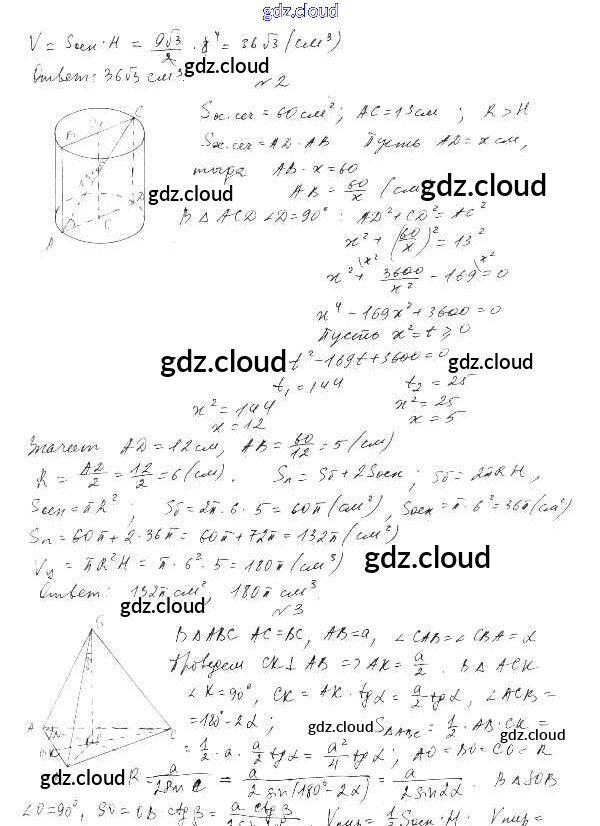 gdz.cloud
V = Sосн·H = 9√3/2 · 8⁴ = 36√3 (см³)
Ответ: 36√3 см³.
gdz.cloud
№2
Sос.сеч = 60 см²; AC = 13 см; R > H
Sос.сеч = AD · AB Пусть AD = x см,
тогда AB · x = 60
gdz.cloud
AB = 60/x (см
gdz.cloud
В △ ACD ∠D = 90°: AD² + CD² = AC²
x² + (60/x)² = 13²
x² + 3600/x² - 169 = 0
x⁴ - 169x² + 3600 = 0
Пусть x² = t ⩾ 0
gdz.cloud
t² - 169t + 3600 = 0
gdz.cloud
t₁ = 144 t₂ = 25
x² = 144 x² = 25
x = 12 x = 5
Значит AD = 12 см, AB = 60/12 = 5 (см)
R = AD/2 = 12/2 = 6 (см). Sп = Sб + 2Sосн; Sб = 2πRH,
Sосн = πR²; Sб = 2π · 6 · 5 = 60π (см²), Sосн = π · 6² = 36π (см²)
Sп = 60π + 2 · 36π = 60π + 72π = 132π (см²)
Vц = πR²H = π · 6² · 5 = 180π (см³)
gdz.cloud
Ответ: 132π см², 180π см³.
gdz.cloud
№3
В △ ABC AC = BC, AB = a, ∠CAB = ∠CBA = α
Проведем CK ⊥ AB => AK = a/2. В △ ACK
∠K = 90°, CK = AK · tgα = a/2 tgα, ∠ACB =
= 180° - 2α; S△ABC = 1/2 · AB · CK =
gdz.cloud
gdz.cloud
= 1/2 · a · a/2 tgα = a²/4 tgα; AO = BO = CO = R
gdz.cloud
R = a/2sin C = a/2sin(180° - 2α) = a/2sin2α. В △ SOB
gdz.cloud
∠O = 90°, SO = OB ctgβ = a ctgβ
Vпир = 1/3 Sосн · H. Vпир =